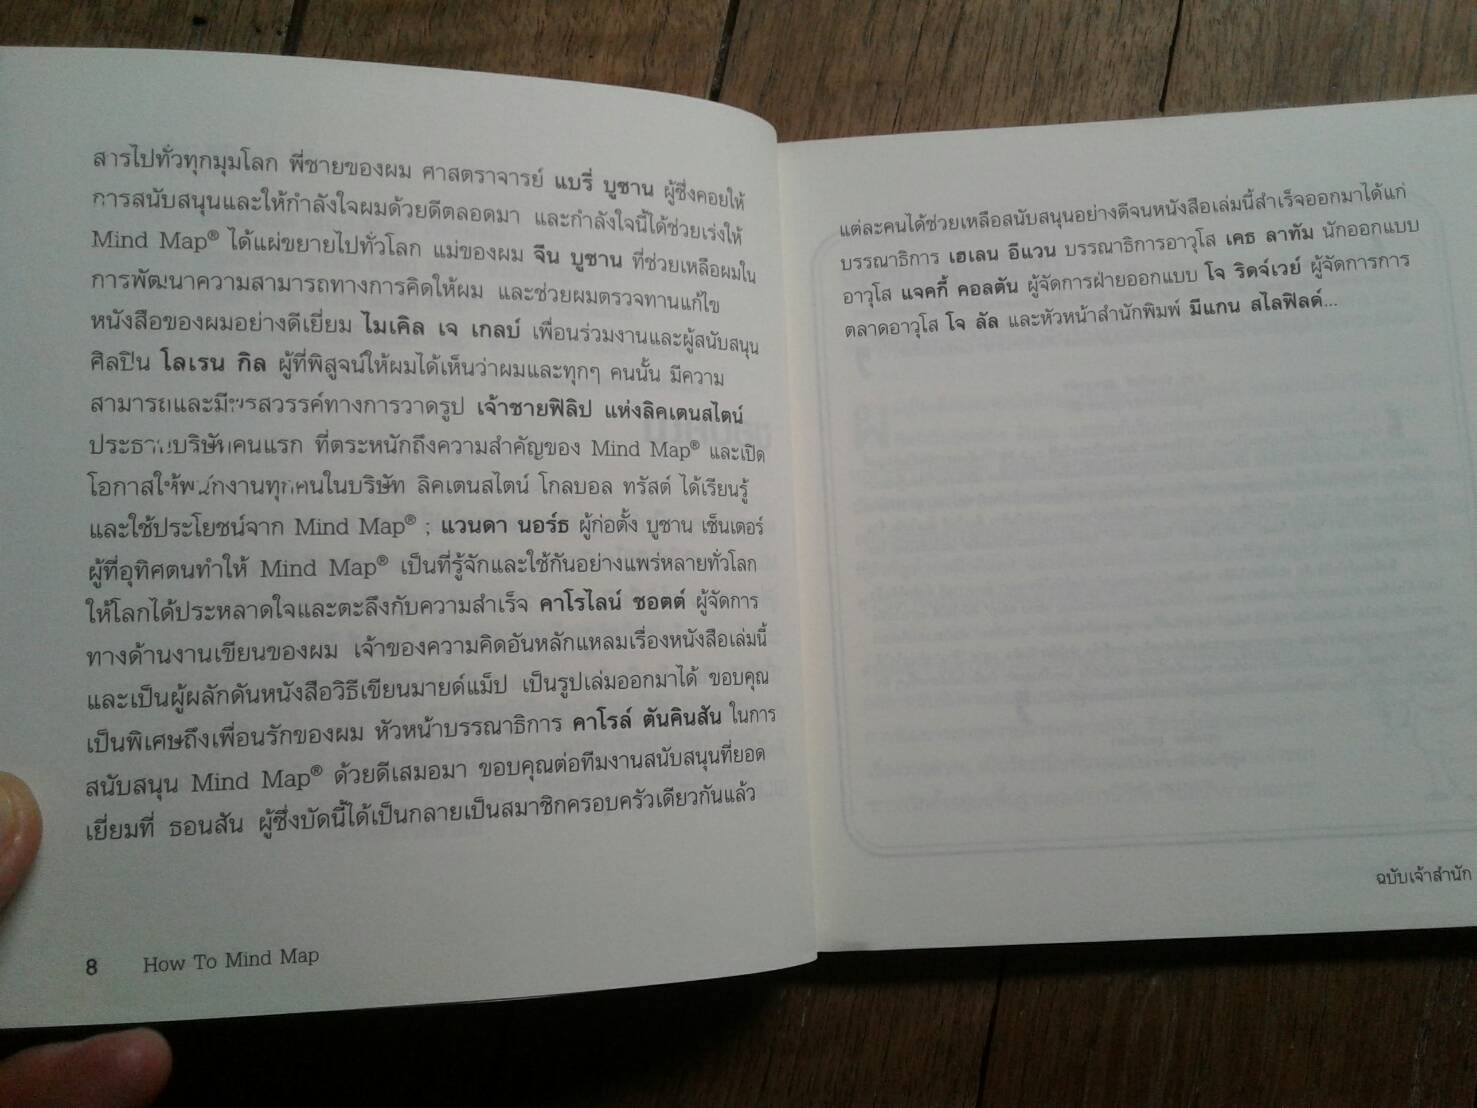 สารไปทั่วทุกมุมโลก พี่ชายของผม ศาสตราจารย์ แบรี่ บูซาน ผู้ซึ่งคอยให้
การสนับสนุนและให้กำลังใจผมด้วยดีตลอดมา และกำลังใจนี้ได้ช่วยเร่งให้
Mind Map® ได้แผ่ขยายไปทั่วโลก แม่ของผม จีน บูซาน ที่ช่วยเหลือผมใน
การพัฒนาความสามารถทางการคิดให้ผม และช่วยผมตรวจทานแก้ไข
หนังสือของผมอย่างดีเยี่ยม ไมเคิล เจ เกลบ์ เพื่อนร่วมงานและผู้สนับสนุน
ศิลปิน โลเรน กิล ผู้ที่พิสูจน์ให้ผมได้เห็นว่าผมและทุกๆ คนนั้น มีความ
สามารถและมีพรสวรรค์ทางการวาดรูป เจ้าชายฟิลิป แห่งลิคเตนสไตน์
ประธานบริษัทคนแรก ที่ตระหนักถึงความสำคัญของ Mind Map® และเปิด
โอกาสให้พนักงานทุกคนในบริษัท ลิคเตนสไตน์ โกลบอล ทรัสต์ ได้เรียนรู้
และใช้ประโยชน์จาก Mind Map® ; แวนดา นอร์ธ ผู้ก่อตั้ง บูซาน เซ็นเตอร์
ผู้ที่อุทิศตนทำให้ Mind Map® เป็นที่รู้จักและใช้กันอย่างแพร่หลายทั่วโลก
ให้โลกได้ประหลาดใจและตะลึงกับความสำเร็จ คาโรไลน์ ชอตต์ ผู้จัดการ
ทางด้านงานเขียนของผม เจ้าของความคิดอันหลักแหลมเรื่องหนังสือเล่มนี้
และเป็นผู้ผลักดันหนังสือวิธีเขียนมายด์แม็ป เป็นรูปเล่มออกมาได้ ขอบคุณ
เป็นพิเศษถึงเพื่อนรักของผม หัวหน้าบรรณาธิการ คาโรล์ ตันคินสัน ในการ
สนับสนุน Mind Map® ด้วยดีเสมอมา ขอบคุณต่อทีมงานสนับสนุนที่ยอด
เยี่ยมที่ ธอนสัน ผู้ซึ่งบัดนี้ได้เป็นกลายเป็นสมาชิกครอบครัวเดียวกันแล้ว
8 How To Mind Map
แต่ละคนได้ช่วยเหลือสนับสนุนอย่างดีจนหนังสือเล่มนี้สำเร็จออกมาได้แก่
บรรณาธิการ เฮเลน อีแวน บรรณาธิการอาวุโส เคธ ลาทัม นักออกแบบ
อาวุโส แจคกี้ คอลตัน ผู้จัดการฝ่ายออกแบบ โจ ริดจ์เวย์ ผู้จัดการการ
ตลาดอาวุโส โจ ลัล และหัวหน้าสำนักพิมพ์ มีแกน สไลฟิลด์...
ฉบับเจ้าสำนัก